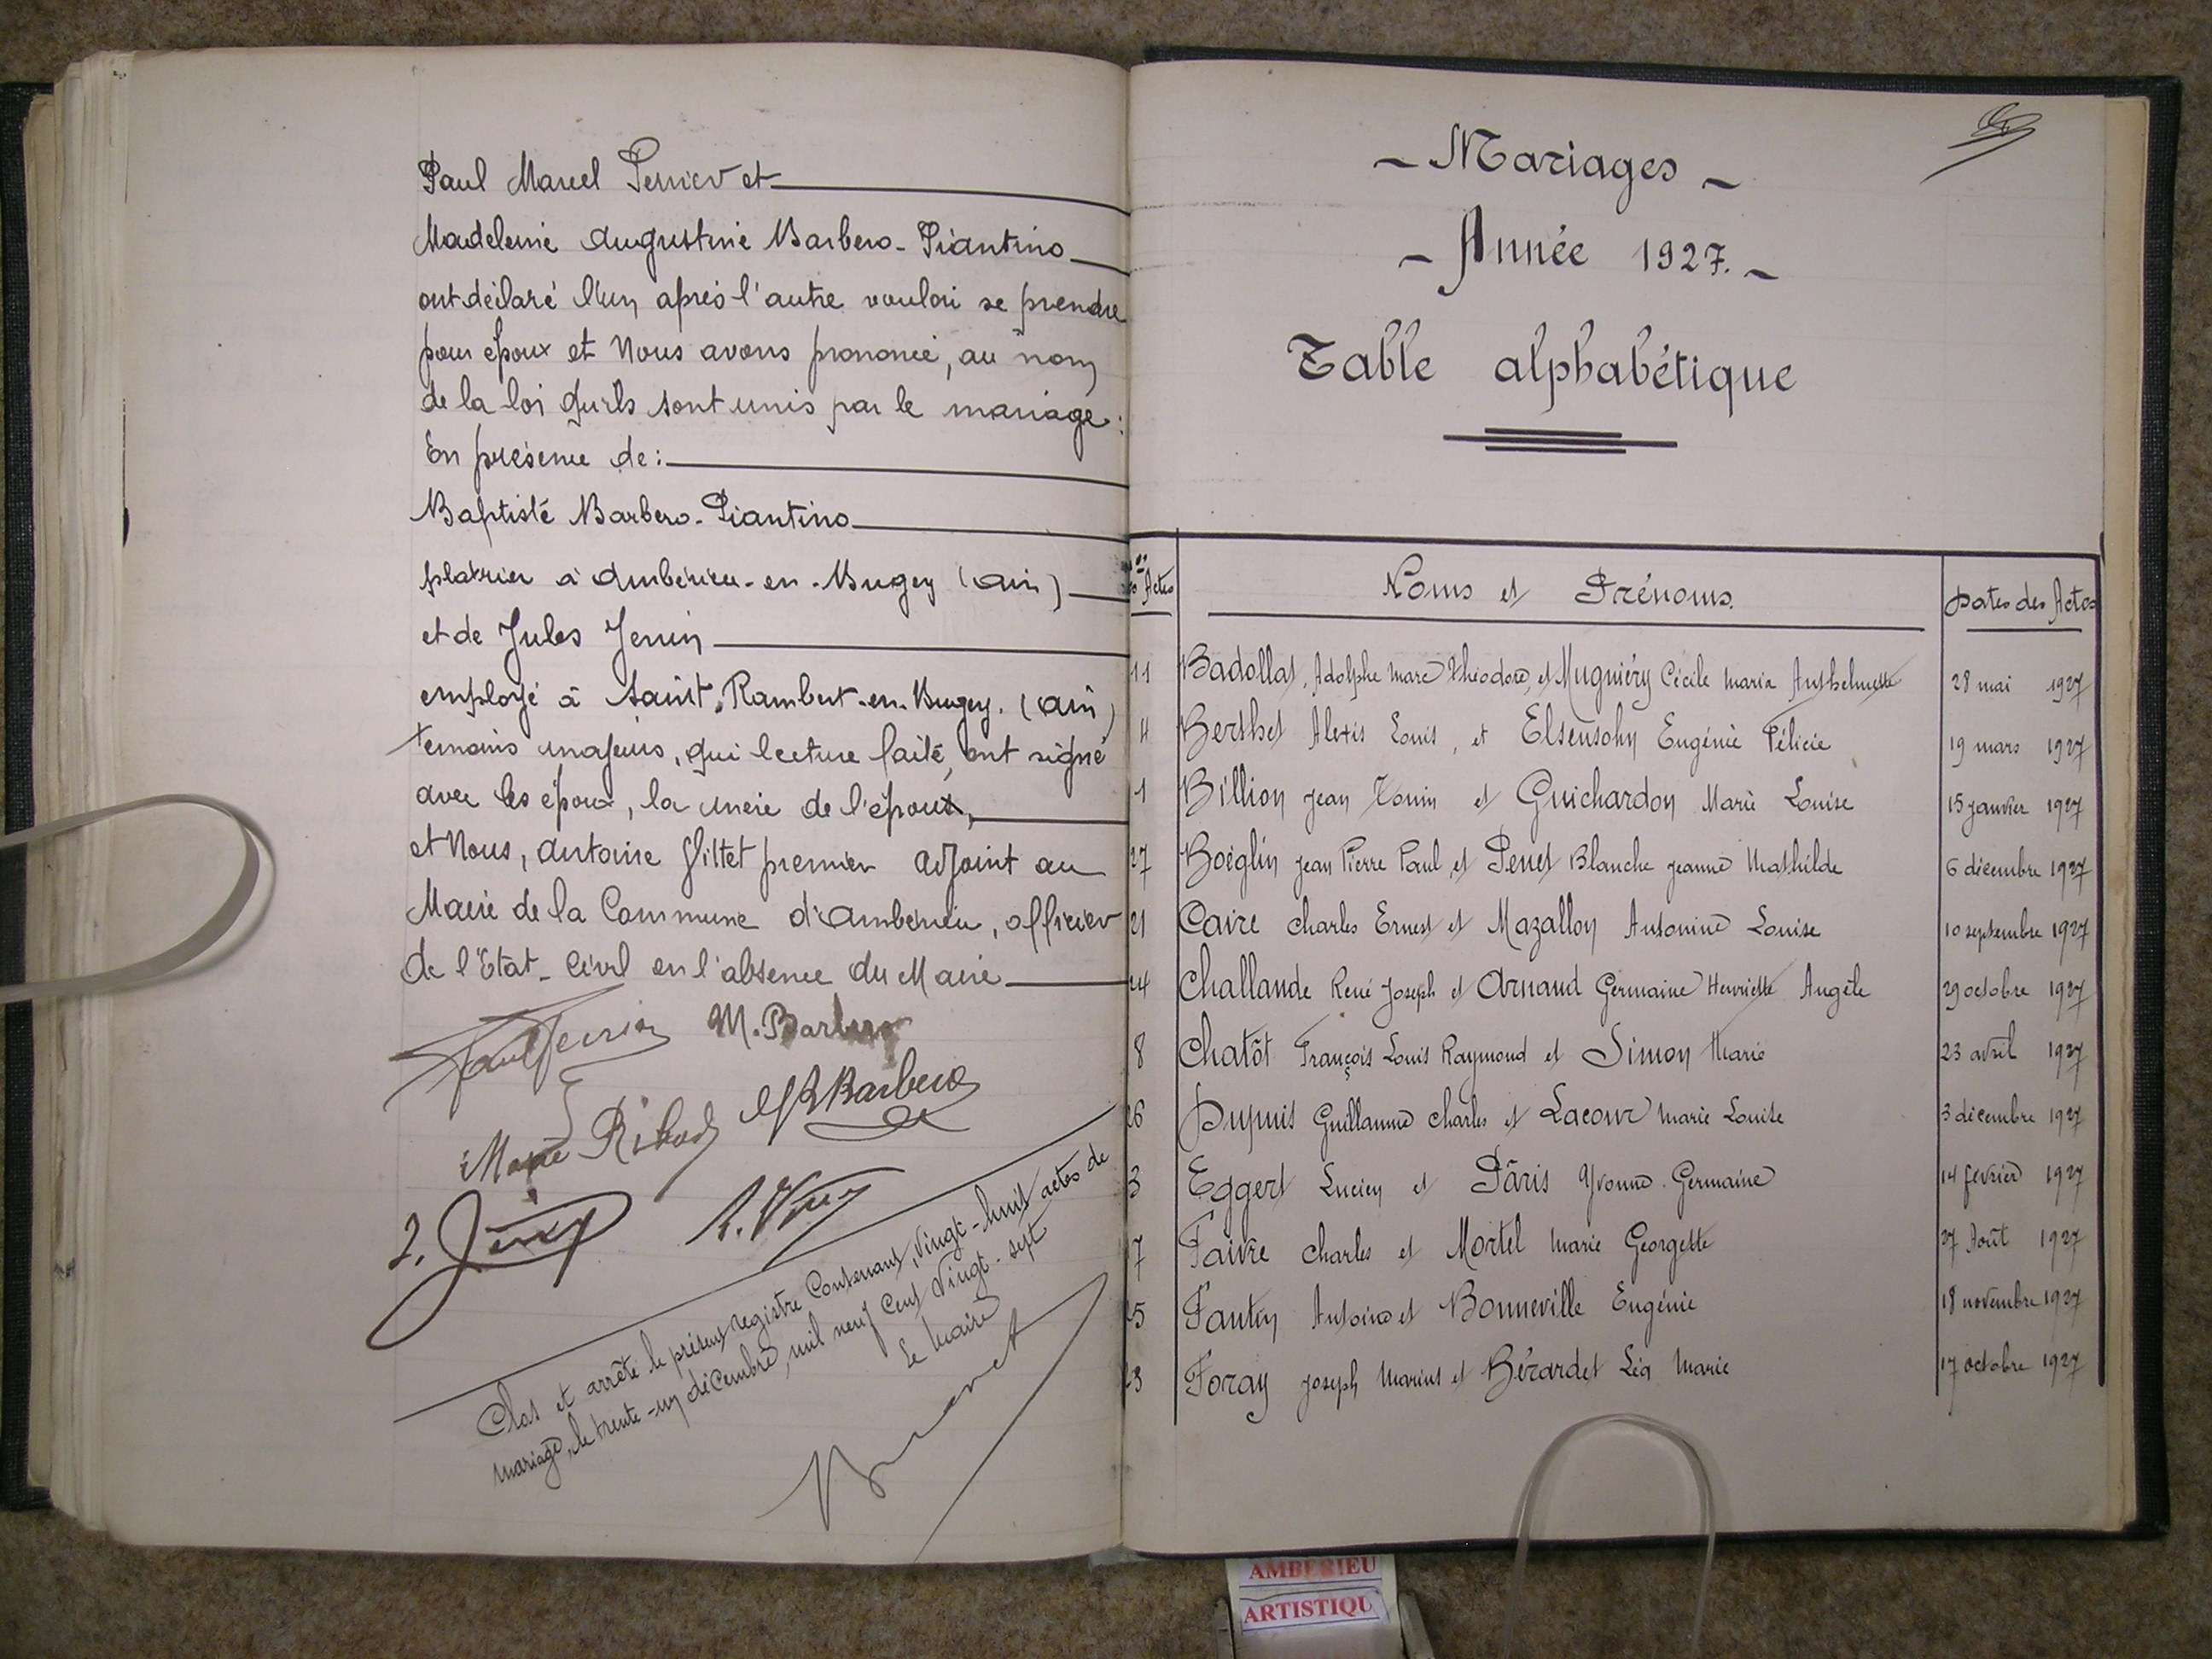 Paul Marcel Perrier et
Madeleine Augustine Barbero-Piantino
ont déclaré l'un après l'autre vouloir se prendre
pour époux et Nous avons prononcé, au nom
de la loi qu'ils sont unis par le mariage:
En présence de:
Baptiste Barbero-Piantino
platrier à Ambérieu-en-Bugey (Ain)
et de Jules Jenin
employé à Saint-Rambert-en-Bugey. (Ain)
témoins majeurs, qui lecture faite, ont signé
avec les époux, la mère de l'époux,
et Nous, Antoine premier adjoint au
Maire de la Commune d'Ambérieu, officier
de l'Etat-Civil en l'absence du Maire
Paul Perrier M. Barbero
Marie Barbero
J. Jenin
Clos et arrêté le présent registre Contenant, Vingt-huit actes de
mariage, le trente-un décembre, mil neuf Cent Vingt-sept
Le Maire
- Mariages -
- Année 1927. -
Table alphabétique
Actes Noms et Prénoms. Dates des Actes
11 Badollat, Adolphe Marc Théodore, et Mugniéry Cécile Maria Anthelmette 28 mai 1927
4 Berthet Alexis Louis, et Elsensohn Eugénie Félicie 19 mars 1927
1 Billion Jean Tonin et Guichardon Marie Louise 15 janvier 1927
27 Boëglin Jean Pierre Paul, et Penet Blanche Jeanne Mathilde 6 décembre 1927
21 Caire Charles Ernest et Mazallon Antonine Louise 10 septembre 1927
24 Challande René Joseph et Arnaud Germaine Henriette Angèle 29 octobre 1927
8 Chatôt François Louis Raymond et Simon Marie 23 avril 1927
26 Dupuis Guillaume Charles et Lacour Marie Louise 3 décembre 1927
3 Eggert Lucien et Pâris Yvonne Germaine 14 février 1927
7 Faivre Charles et Mortel Marie Georgette 27 Août 1927
25 Fantin Antoine et Bonneville Eugénie 18 novembre 1927
23 Foray Joseph Marius et Bérardet Léa Marie 17 octobre 1927
AMBERIEU
ARTISTIQU